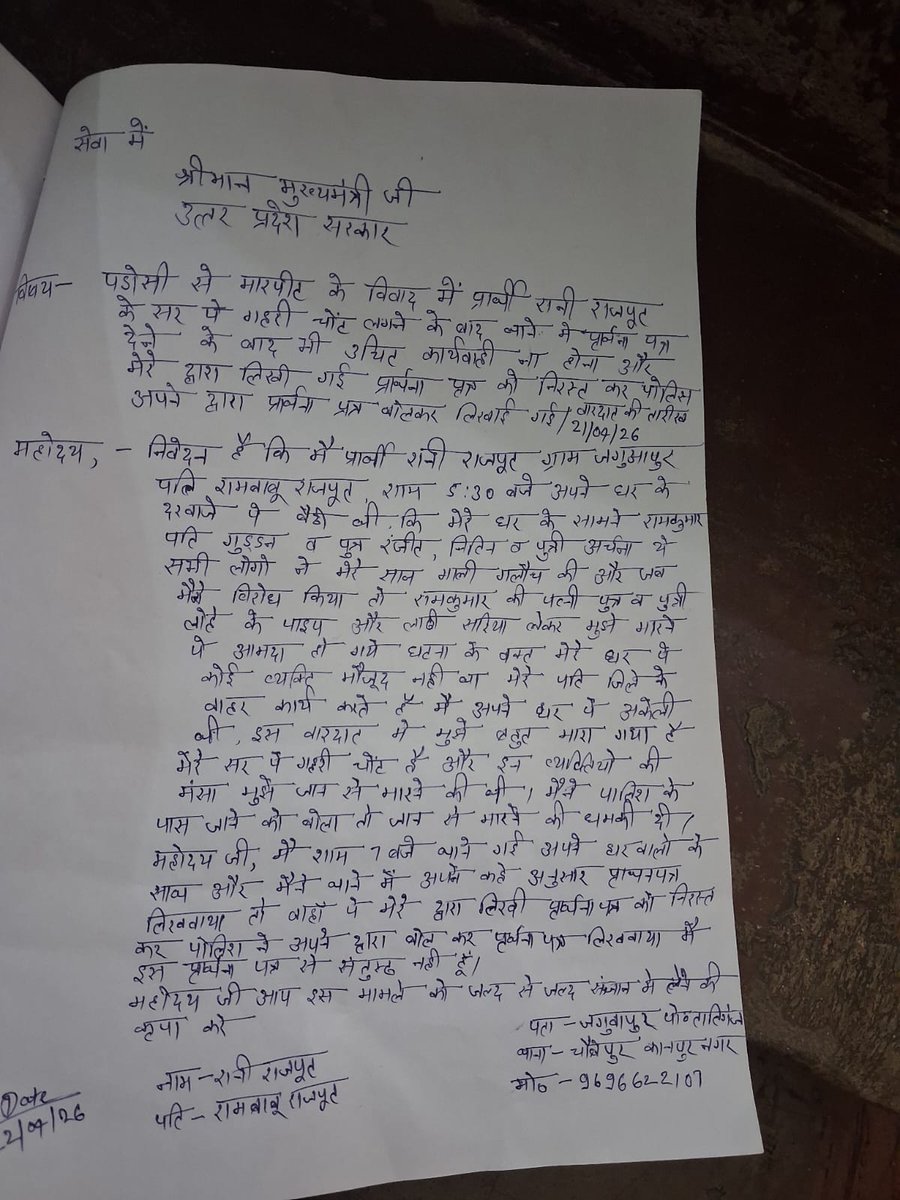 सेवा में
श्रीमान मुख्यमंत्री जी
उत्तर प्रदेश सरकार
विषय- पडोसी से मारपीट के विवाद में प्रार्थी रानी राजपूत
के सर पे गहरी चोंट लगने के बाद थाने मे प्रार्थना पत्र
देने के बाद भी उचित कार्यवाही ना होना और
मेरे द्वारा लिखी गई प्रार्थना पत्र को निरस्त कर पोलिस
अपने द्वारा प्रार्थना पत्र बोलकर लिखाई गई / वारदात की तारीख
21/04/26
महोदय, - निवेदन है कि मै प्रार्थी रानी राजपूत ग्राम जगुआपुर
पति रामबाबू राजपूत, शाम 5:30 बजे अपने घर के
दरवाजे पे बैठी थी कि मेरे घर के सामने रामकुमार
पति गुड्डन व पुत्र रंजीत, नितिन व पुत्री अर्चना ये
सभी लोगो ने मेरे साथ गाली गलौच की और जब
मैने विरोध किया तो रामकुमार की पत्नी पुत्र व पुत्री
लोहे के पाइप और लाठी सरिया लेकर मुझे मारने
पे आमदा हो गये घटना के वक्त मेरे घर पे
कोई व्यक्ति मौजूद नही था मेरे पति जिले के
बाहर कार्य करते हैं मै अपने घर पे अकेली
थी, इस वारदात मे मुझे बहुत मारा गया है
मेरे सर पे गहरी चोट है और इन व्यक्तियो की
मंसा मुझे जान से मारने की थी। मैने पोलिश के
पास जाने को बोला तो जान से मारने की धमकी दी/
महोदय जी, मै शाम 7 बजे थाने गई अपने घरवालो के
साथ और मैने थाने में अपने कहे अनुसार प्रार्थनापत्र
लिखवाया तो वाहाँ पे मेरे द्वारा लिखी प्रार्थना पत्र को निरस्त
कर पोलिश ने अपने द्वारा बोल कर प्रार्थना पत्र लिखवाया मै
इस प्रार्थना पत्र से संतुष्ठ नही हूँ।
महोदय जी आप इस मामले को जल्द से जल्द संज्ञान मे लेने की
कृपा करे
पता - जगुवापुर पो०
थाना - चौबेपुर कानपुर नगर
मो० - 9696622107
नाम - रानी राजपूत
पति - रामबाबू राजपूत
Date
2/04/26